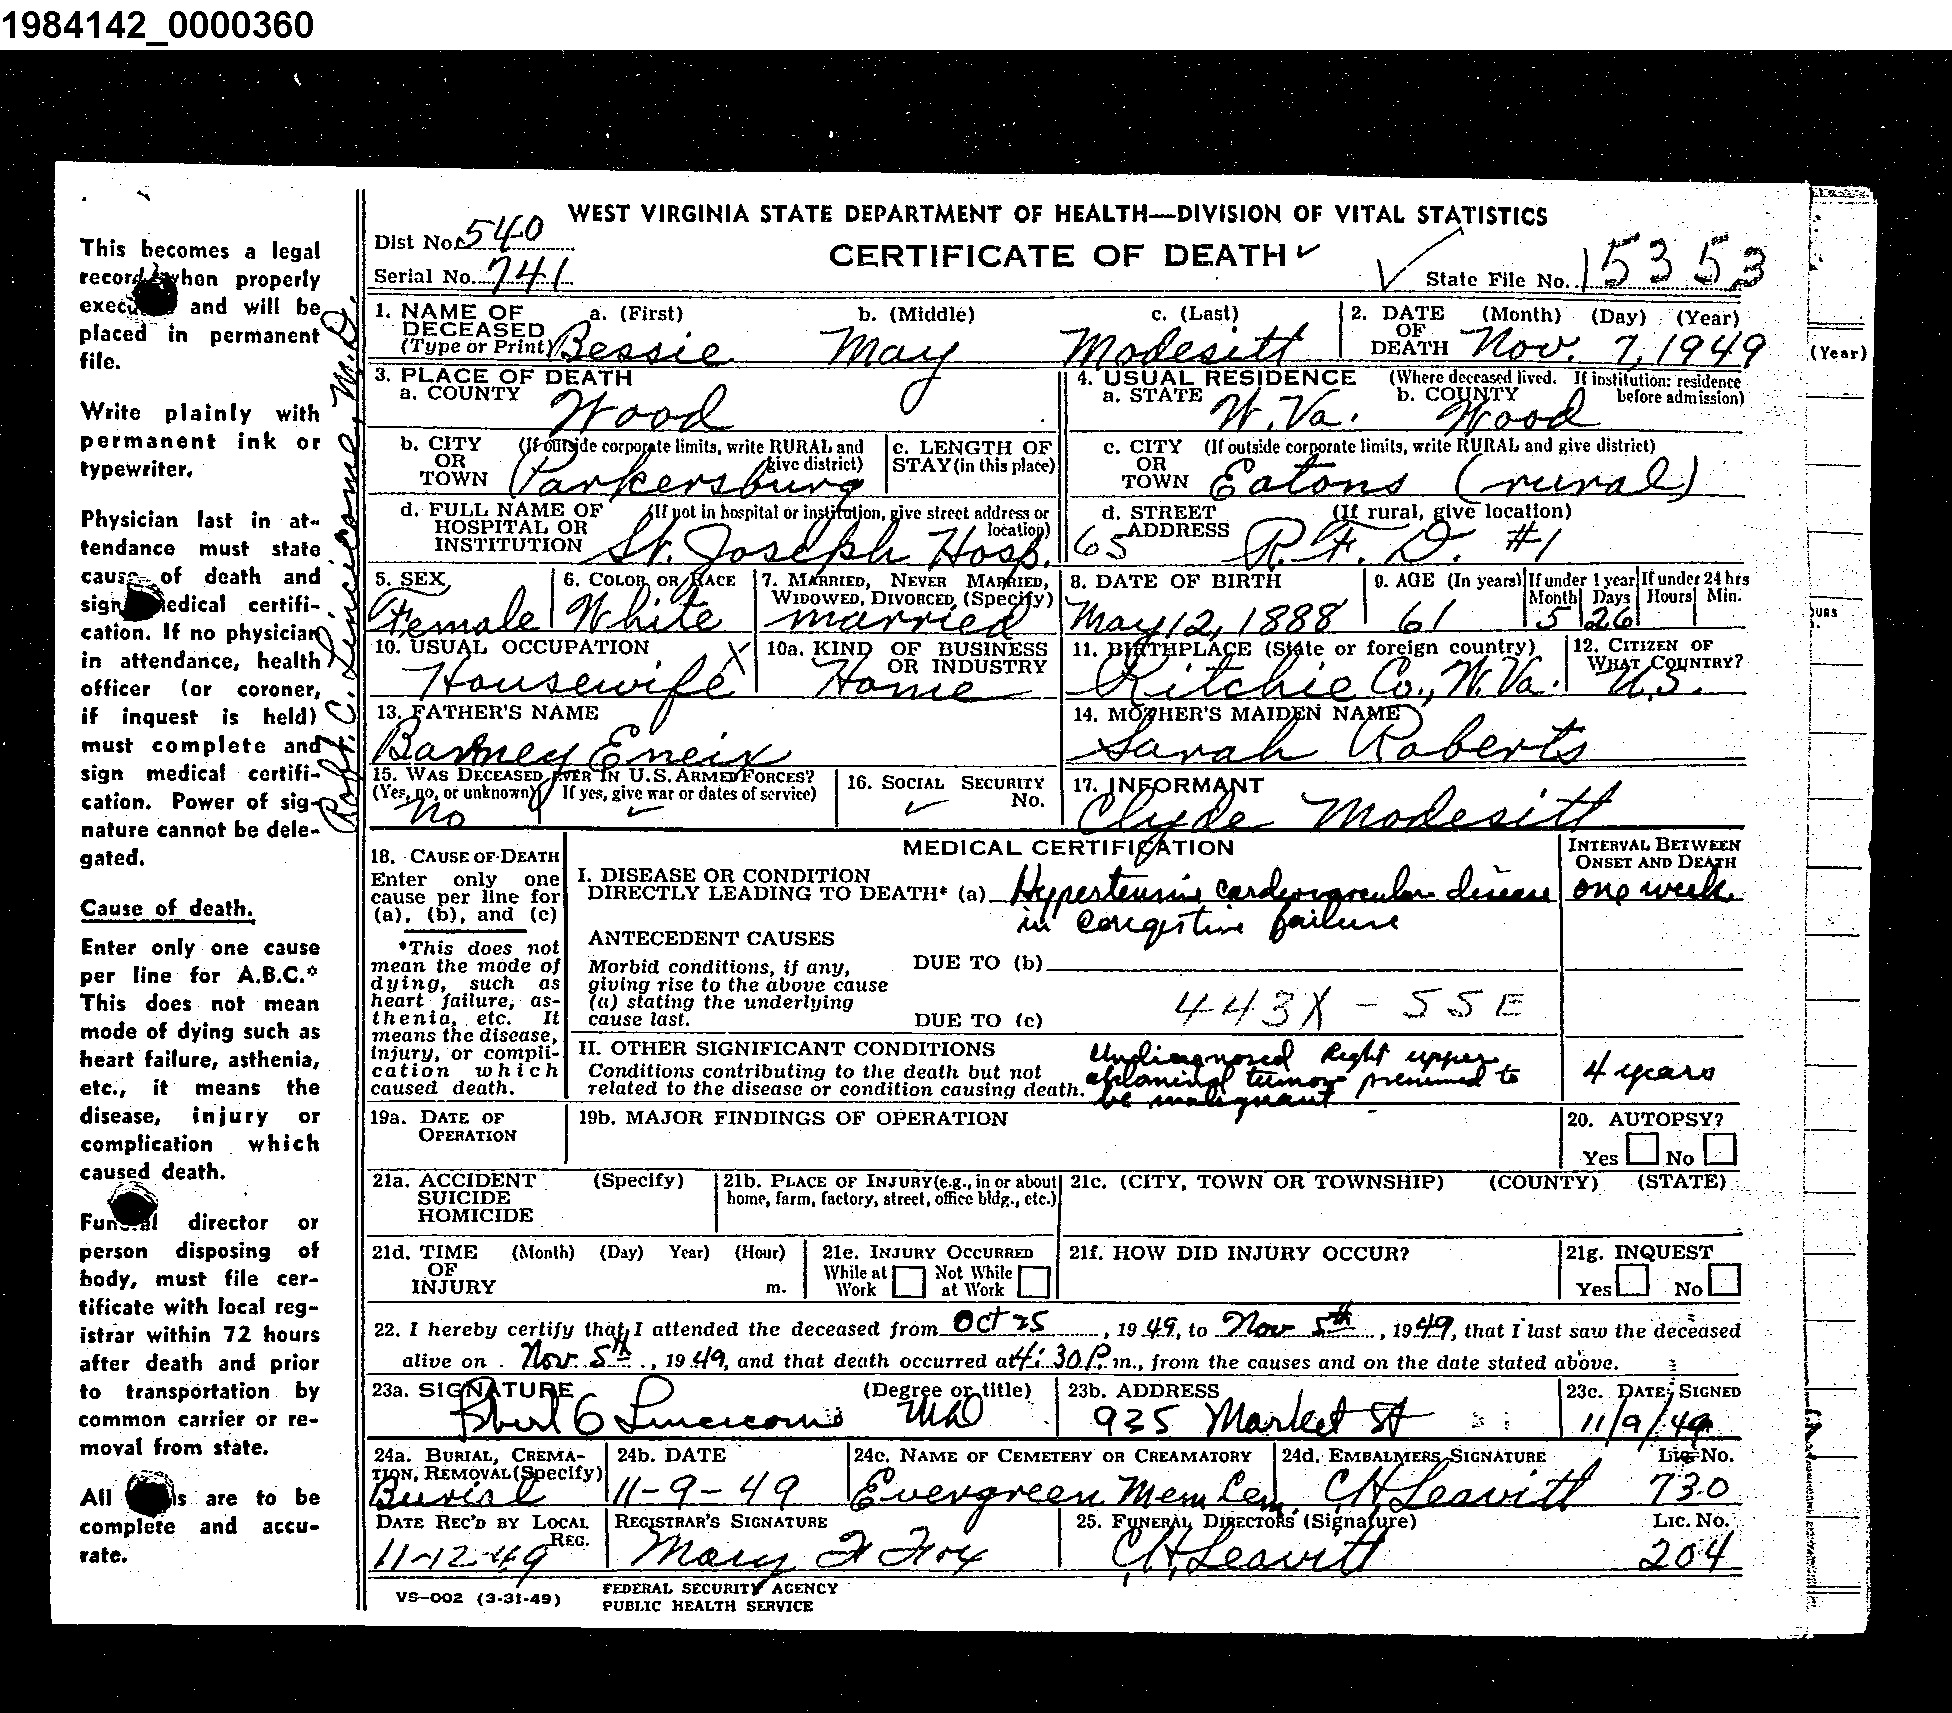 1984142_0000360
WEST VIRGINIA STATE DEPARTMENT OF HEALTH—DIVISION OF VITAL STATISTICS
Dist No. 540
CERTIFICATE OF DEATH
Serial No. 741
State File No. 15353
1. NAME OF DECEASED (Type or Print) a. (First) b. (Middle) c. (Last)
Bessie May Modesitt
2. DATE OF DEATH (Month) (Day) (Year)
Nov. 7, 1949
3. PLACE OF DEATH
a. COUNTY Wood
4. USUAL RESIDENCE (Where deceased lived. If institution: residence before admission)
a. STATE W. Va. b. COUNTY Wood
b. CITY OR TOWN (If outside corporate limits, write RURAL and give district)
Parkersburg
c. LENGTH OF STAY (in this place)
c. CITY OR TOWN (If outside corporate limits, write RURAL and give district)
Eatons (rural)
d. FULL NAME OF HOSPITAL OR INSTITUTION (If not in hospital or institution, give street address or location)
St. Joseph Hosp.
d. STREET ADDRESS (If rural, give location)
65 R. F. D. #1
5. SEX Female
6. COLOR OR RACE White
7. MARRIED, NEVER MARRIED, WIDOWED, DIVORCED, (Specify) married
8. DATE OF BIRTH May 12, 1888
9. AGE (In years) 61
If under 1 year Month Days 5 26
If under 24 hrs Hours Min.
10. USUAL OCCUPATION Housewife X
10a. KIND OF BUSINESS OR INDUSTRY Home
11. BIRTHPLACE (State or foreign country) Ritchie Co., W. Va.
12. CITIZEN OF WHAT COUNTRY? U.S.
13. FATHER'S NAME Barney Eneix
14. MOTHER'S MAIDEN NAME Sarah Roberts
15. WAS DECEASED EVER IN U.S. ARMED FORCES?
(Yes, no, or unknown) If yes, give war or dates of service)
No
16. SOCIAL SECURITY No.
17. INFORMANT Clyde Modesitt
MEDICAL CERTIFICATION
INTERVAL BETWEEN ONSET AND DEATH
18. CAUSE OF DEATH
Enter only one cause per line for (a), (b), and (c)
*This does not mean the mode of dying, such as heart failure, asthenia, etc. It means the disease, injury, or complication which caused death.
I. DISEASE OR CONDITION
DIRECTLY LEADING TO DEATH* (a) Hypertensive cardiovascular disease one week
in congestive failure
ANTECEDENT CAUSES
Morbid conditions, if any, giving rise to the above cause (a) stating the underlying cause last.
DUE TO (b)
443X - 55E
DUE TO (c)
II. OTHER SIGNIFICANT CONDITIONS
Conditions contributing to the death but not related to the disease or condition causing death.
Undiagnosed Right upper
abdominal tumor presumed to
be malignant
4 years
19a. DATE OF OPERATION
19b. MAJOR FINDINGS OF OPERATION
20. AUTOPSY?
Yes No
21a. ACCIDENT SUICIDE HOMICIDE (Specify)
21b. PLACE OF INJURY (e.g., in or about home, farm, factory, street, office bldg., etc.)
21c. (CITY, TOWN OR TOWNSHIP) (COUNTY) (STATE)
21d. TIME OF INJURY (Month) (Day) Year) (Hour) m.
21e. INJURY OCCURRED
While at Work Not While at Work
21f. HOW DID INJURY OCCUR?
21g. INQUEST
Yes No
22. I hereby certify that I attended the deceased from Oct 25, 1949, to Nov 5th, 1949, that I last saw the deceased
alive on Nov. 5th, 1949, and that death occurred at 4:30 P.m., from the causes and on the date stated above.
23a. SIGNATURE (Degree or title)
Robert C Lincicome MD
23b. ADDRESS 925 Market St
23c. DATE SIGNED 11/9/49
24a. BURIAL, CREMATION, REMOVAL (Specify) Burial
24b. DATE 11-9-49
24c. NAME OF CEMETERY OR CREAMATORY Evergreen Mem Cem.
24d. EMBALMERS SIGNATURE Lic. No.
C. H. Leavitt 730
DATE REC'D BY LOCAL REG. 11-12-49
REGISTRAR'S SIGNATURE Mary F Fox
25. FUNERAL DIRECTORS' (Signature) LIC. No.
C. H. Leavitt 204
VS—002 (3-31-49)
FEDERAL SECURITY AGENCY
PUBLIC HEALTH SERVICE
This becomes a legal
record when properly
and will be
placed in permanent
file.
Write plainly with
permanent ink or
typewriter.
Physician last in at-
tendance must state
cause of death and
sign medical certifi-
cation. If no physician
in attendance, health
officer (or coroner,
if inquest is held)
must complete and
sign medical certifi-
cation. Power of sig-
nature cannot be dele-
gated.
Cause of death.
Enter only one cause
per line for A.B.C.*
This does not mean
mode of dying such as
heart failure, asthenia,
etc., it means the
disease, injury or
complication which
caused death.
Funeral director or
person disposing of
body, must file cer-
tificate with local reg-
istrar within 72 hours
after death and prior
to transportation by
common carrier or re-
moval from state.
All are to be
complete and accu-
rate.
Robt. C. Lincicome, M.D.
(Year)